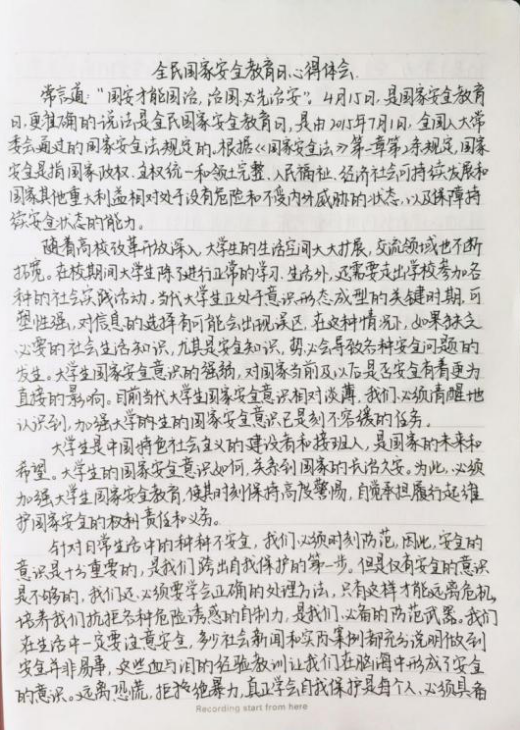 全民国家安全教育日心得体会
常言道："国安才能国治,治国必先治安"。4月15日,是国家安全教育
日,更准确的说法是全民国家安全教育日,是由2015年7月1日,全国人大常
委会通过的国家安全法规定的。根据《国家安全法》第一章第2条规定,国家
安全是指国家政权、主权统一和领土完整、人民福祉、经济社会可持续发展和
国家其他重大利益相对处于没有危险和不受内外威胁的状态,以及保障持
续安全状态的能力。
随着高校改革开放深入,大学生的生活空间大大扩展,交流领域也不断
拓宽。在校期间大学生除了进行正常的学习、生活外,还需要走出学校参加各
种的社会实践活动。当代大学生正处于意识形态成型的关键时期,可
塑性强,对信息的选择有可能会出现误区,在这种情况下,如果缺乏
必要的社会生活知识,尤其是安全知识,势必会导致各种安全问题的
发生。大学生国家安全意识的强弱,对国家当前及以后是否安全有着更为
直接的影响。目前当代大学生国家安全意识相对淡薄,我们必须清醒地
认识到,加强大学的生的国家安全意识已是刻不容缓的任务。
大学生是中国特色社会主义的建设者和接班人,是国家的未来和
希望。大学生的国家安全意识如何,关系到国家的长治久安。为此,必须
加强大学生国家安全教育,使其时刻保持高度警惕,自觉承担履行起维
护国家安全的权利责任和义务。
针对日常生活中的种种不安全,我们必须时刻防范,因此,安全的
意识是十分重要的,是我们跨出自我保护的第一步。但是仅有安全的意识
是不够的,我们还必须要学会正确的处理方法,只有这样才能远离危机,
培养我们抗拒各种危险诱惑的自制力,是我们必备的防范武器。我们
在生活中一定要注意安全,多少社会新闻和实际案例都充分说明做到
安全并非易事,这些血与泪的经验教训让我们在脑海中形成了安全
的意识。远离恐慌,拒绝绝暴力,真正学会自我保护是每个人必须具备
Recording start from here